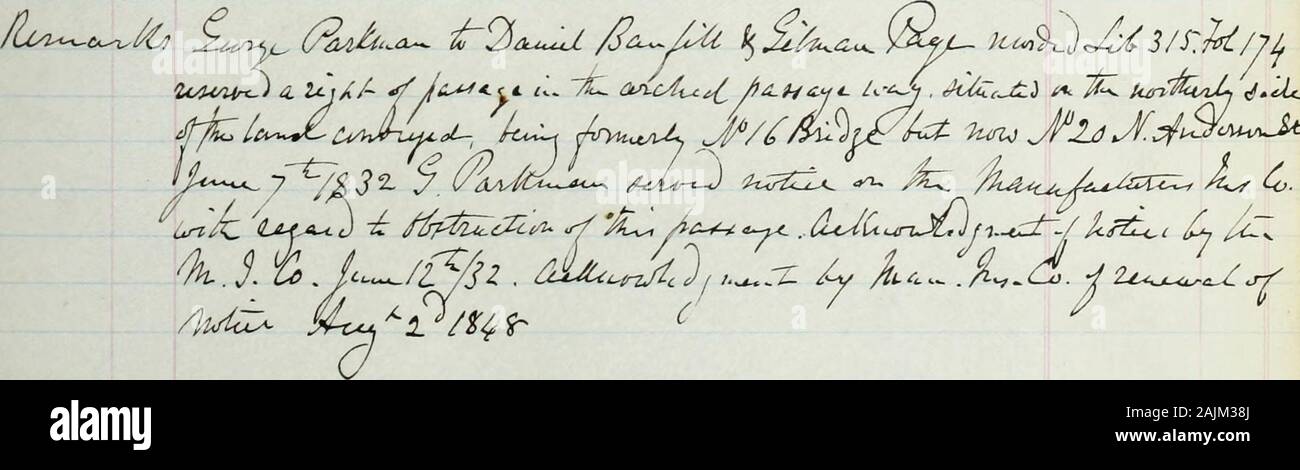 Remarks George Parkman to Daniel Banfill & Gilman Page recorded Lib 315. Fol 174
reserved a right of passage in the arched passage way, situated on the northerly side
of the land conveyed, being formerly Nº 16 Bridge but now Nº 20 N. Anderson St
June 7th 1832 G. Parkman served notice on the Manufacturers Ins Co.
with regard to obstruction of this passage. Acknowledgment of notice by the
M. I. Co. June 12th/32. Acknowledgment by Man. Ins. Co. of renewal of
notice Augt 2d 1848
alamy
Image ID: 2AJM38J
www.alamy.com